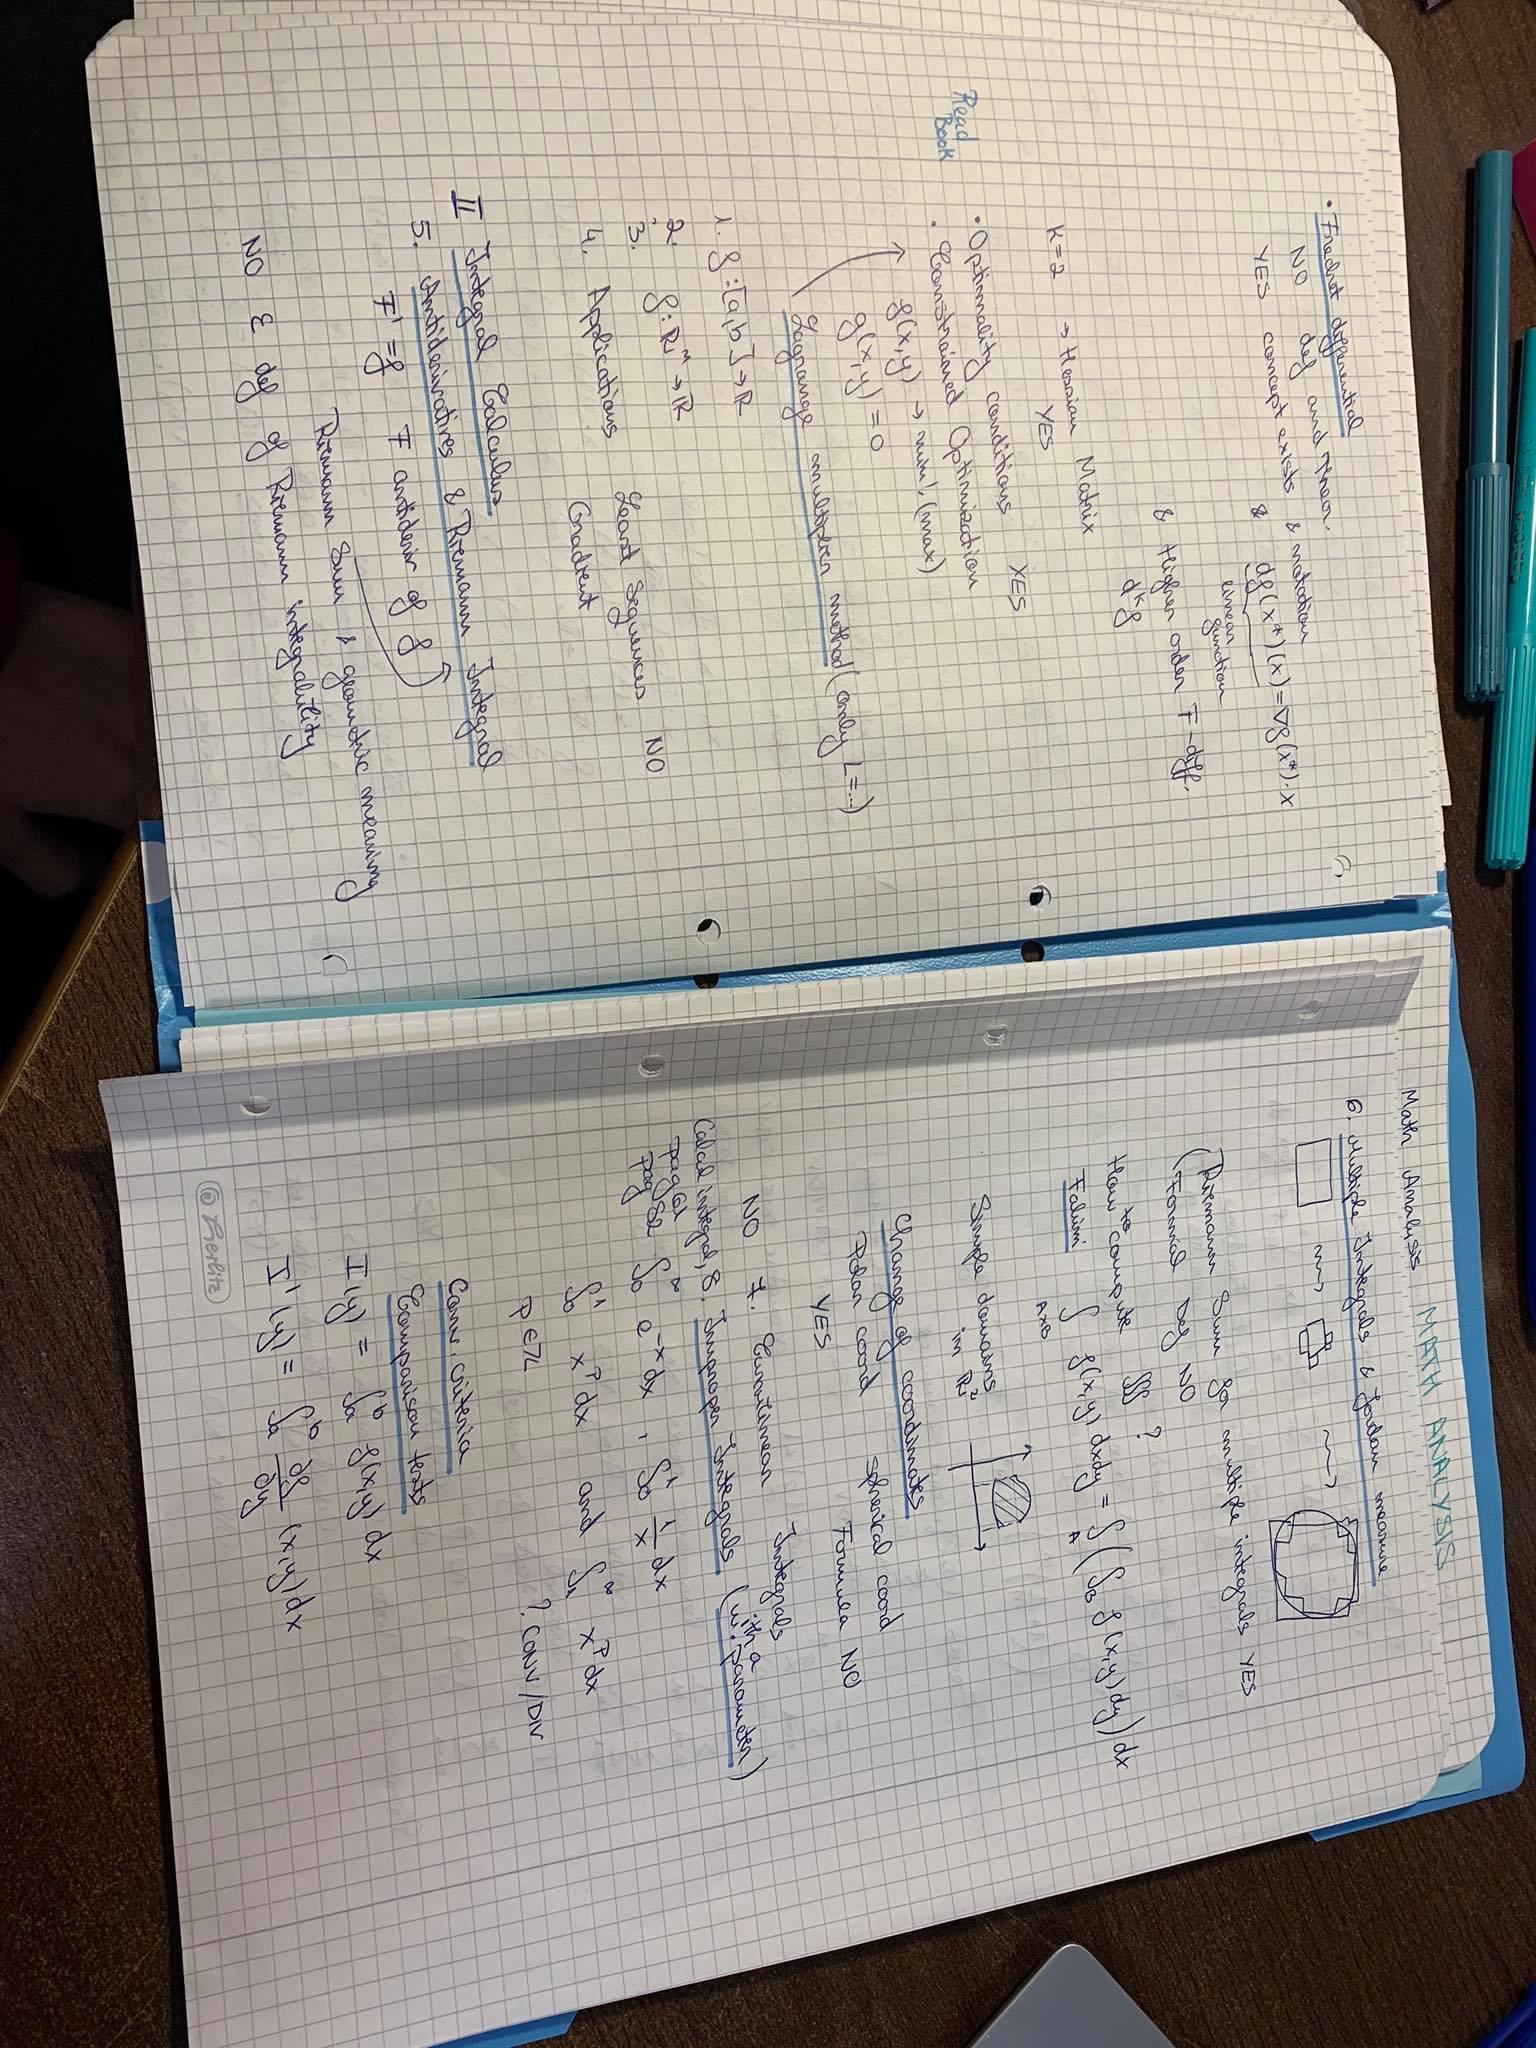 • Frechet differential
NO def and Theor.
YES concept exists & notation
& df(x*)(x) = ∇f(x*)·x
linear
function
& Higher order F-diff.
dᵏf
K=2 → Hessian Matrix
YES
• Optimality conditions YES
Read
Book
• Constrained Optimization
f(x,y) → min! (max)
g(x,y) = 0
Lagrange multiplier method (only L=...)
1. f:[a,b]→ℝ
2.
3. f:ℝⁿ→ℝ
4. Applications Least Sequences NO
Gradient
II Integral Calculus
5. Antiderivatives & Riemann Integral
F' = f F antideriv of f
Riemann Sum & geometric meaning
NO ε def of Riemann integrability
MATH ANALYSIS
Math Analysis
6. Multiple Integrals & Jordan measure
Riemann Sum for multiple integrals YES
Formal Def NO
How to compute ∫∫∫ ?
Fubini ∫_{A×B} f(x,y) dxdy = ∫_A (∫_B f(x,y) dy) dx
Simple domains
in ℝ²
Change of coordinates
Polar coord spherical coord
YES Formula NO
NO 7. Curvilinear Integrals
8. Improper Integrals (with a parameter)
Calcul integral,
pag 61
pag 82 ∫₀^∞ e⁻ˣ dx , ∫₀¹ 1/x dx
∫₀¹ xᵖ dx and ∫₁^∞ xᵖ dx
p∈ℤ ? CONV/DIV
Conv. criteria
Comparison tests
I(y) = ∫ₐᵇ f(x,y) dx
I'(y) = ∫ₐᵇ ∂f/∂y (x,y) dx
Herlitz